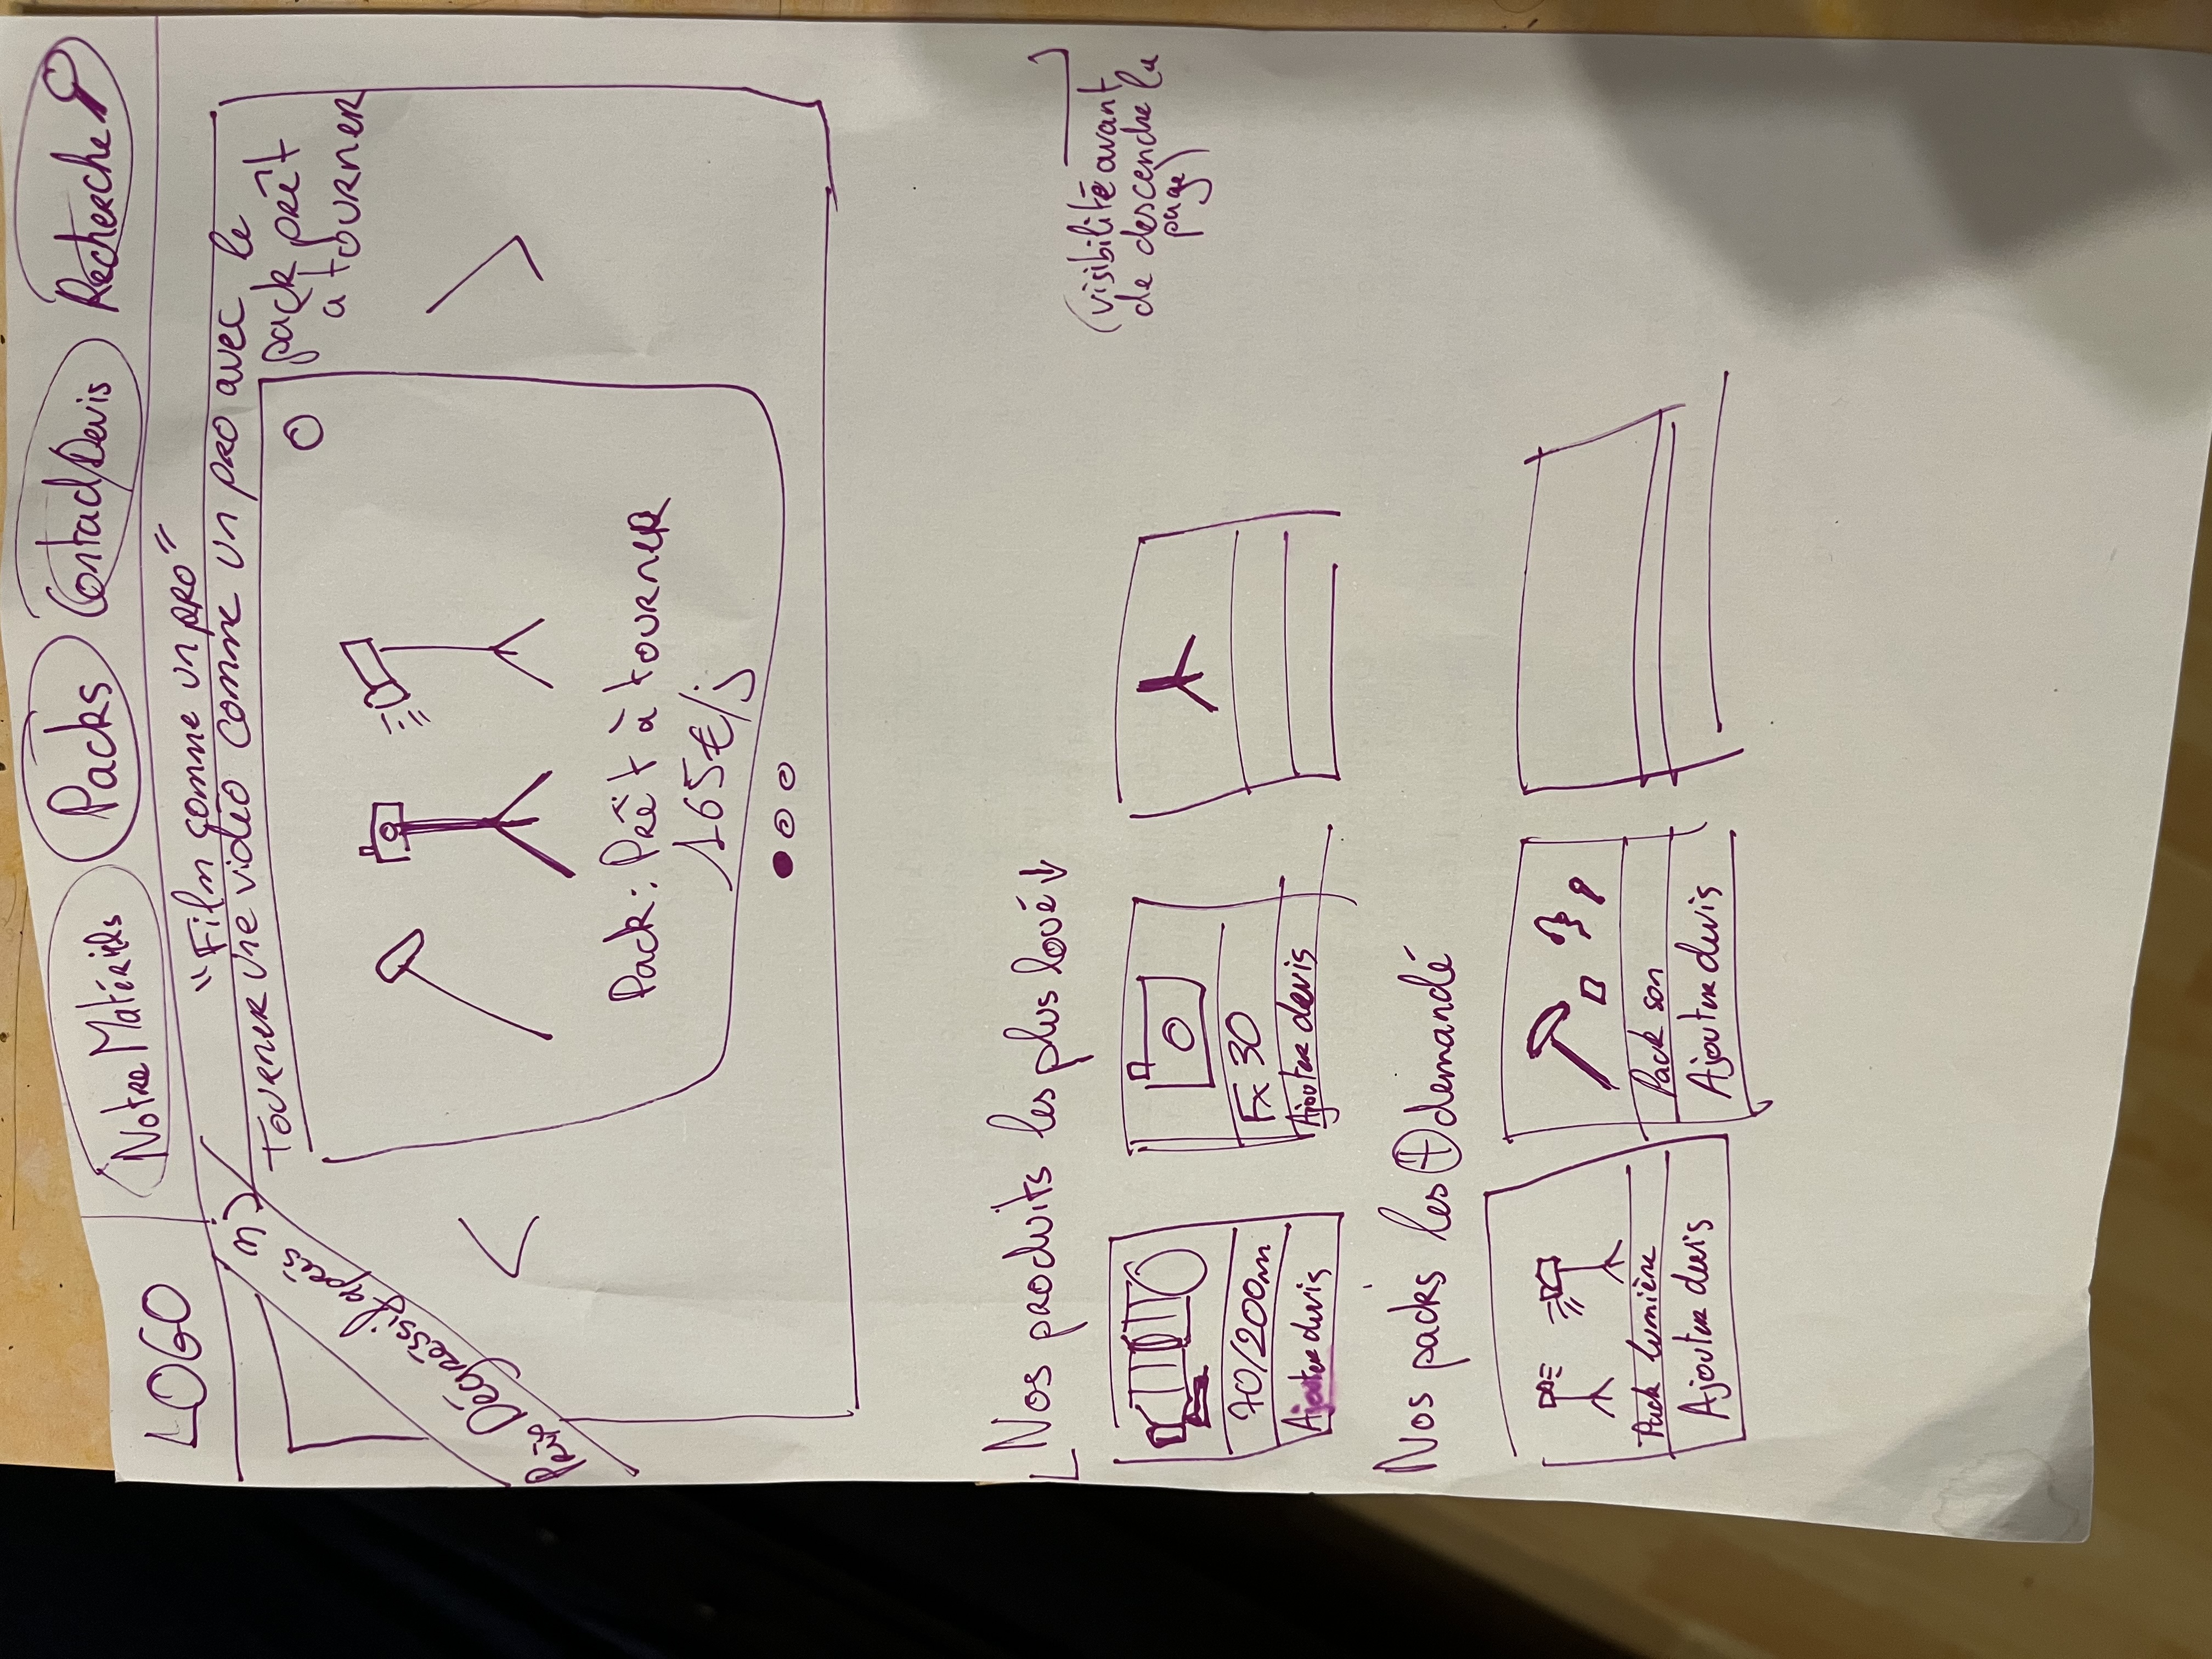 LOGO
Notre Matériels
Packs
Contact/Devis
Recherche
"Film comme un pro"
Tourner une vidéo comme un pro avec le
pack prêt
a tourner
Prix Dégréssif après
Pack : Prêt à tourner
165€/j
Nos produits les plus loué ↓
(visibilité avant
de descendre la
page)
70/200m
Ajouter devis
Fx 30
Ajouter devis
Nos packs les + demandé
Pack lumière
Ajouter devis
Pack son
Ajouter devis